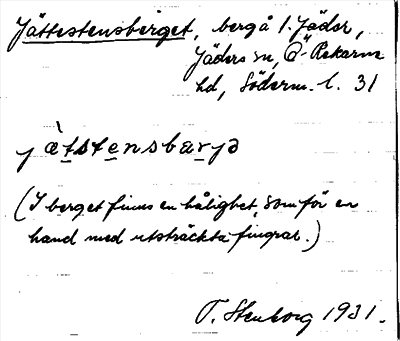 Jättestensberget, bergå l. Jäder,
Jäders sn, Ö-Rekarne
hd, Söderm. l. 31
jätstensbärjə
(I berget finns en hålighet, som för en
hand med utsträckta fingrar.)
T. Stenborg 1931.